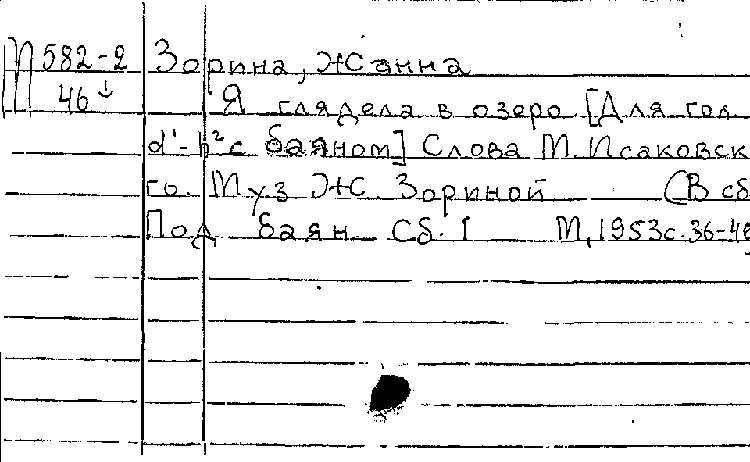 М 582-2 Зорина, Жанна
46↓ Я глядела в озеро [Для гол
d¹-h² с баяном] Слова М. Исаковск
го. Муз Ж. Зориной (В сб
Под баян Сб. 1 М, 1953 с. 36-4